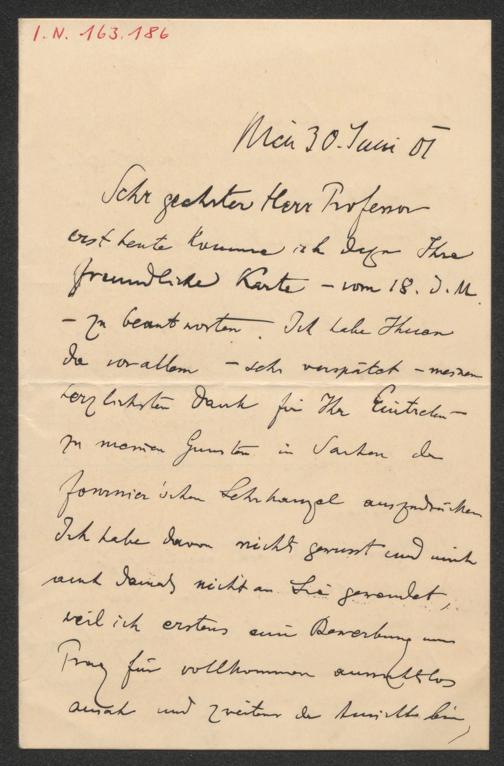 I.N. 163.186
Wien 30. Juni 01
Sehr geehrter Herr Professor
erst heute komme ich dazu Ihre
freundliche Karte – vom 18. d. M.
– zu beantworten. Ich habe Ihnen
da vor allem – sehr verspätet – meinen
herzlichsten Dank für Ihr Eintreten
zu meinen Gunsten in Sachen der
Fournier'schen Lehrkanzel auszudrücken
Ich habe davon nichts gewusst und mich
auch damals nicht an Sie gewendet,
weil ich erstens eine Bewerbung um
Prag für vollkommen aussichtslos
ansah und zweitens der Ansicht bin,